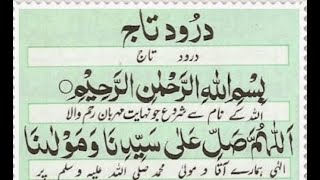 درود تاج
درود تاج
بِسْمِ اللهِ الرَّحْمٰنِ الرَّحِيْمِ
اللہ کے نام سے شروع جو نہایت مہربان رحم والا
اَللّٰهُمَّ صَلِّ عَلٰى سَيِّدِنَا وَمَوْلٰينَا
الٰہی ہمارے آقا و مولیٰ محمد صلی اللہ علیہ وسلم پر